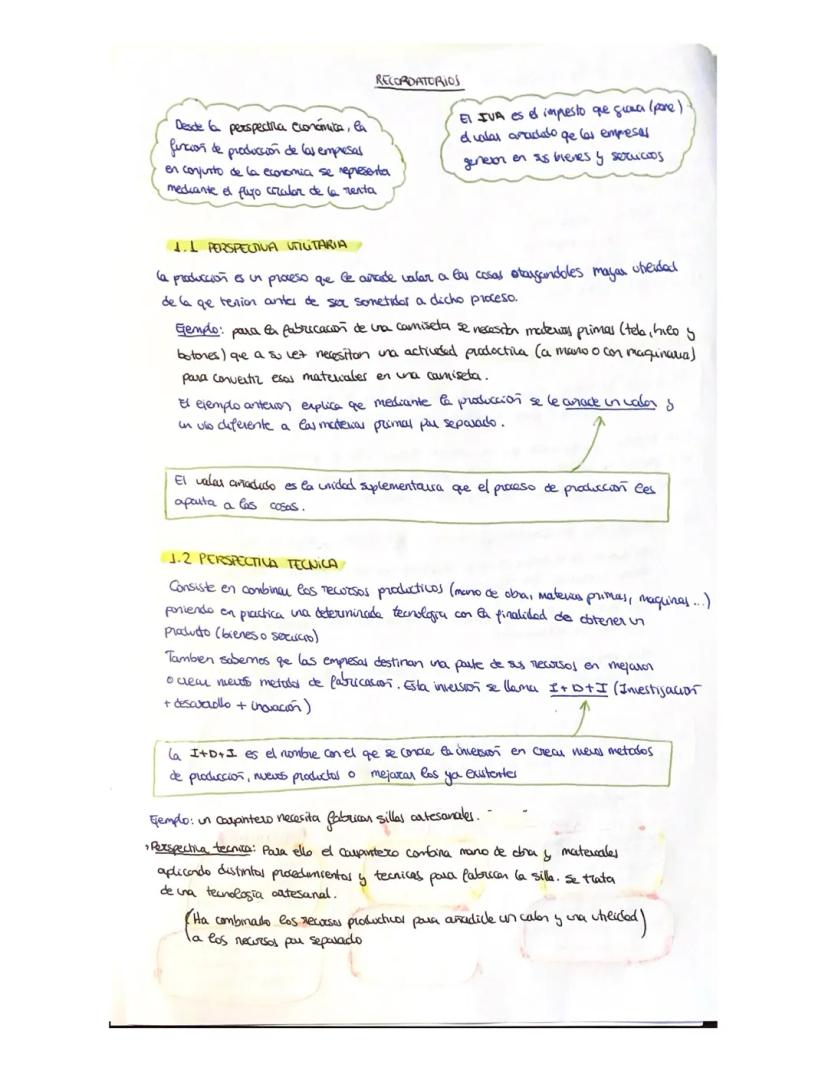 RECORDATORIOS
Desde la perspectiva económica, la
función de producción de las empresas
en conjunto de la economia se representa
mediante el flujo circular de la renta
El IVA es el impuesto que grava (pone)
el valor añadido qe las empresas
generan en sus bienes y servicios
1.1 PERSPECTIVA UTILITARIA
La producción es un proceso que le añade valor a las cosas otorgandoles mayor utilidad
de la qe tenian antes de ser sometidos a dicho proceso.
Ejemplo: para la fabricación de una camiseta se necesitan materias primas (tela, hilo y
botones) que a su vez necesitan una actividad productiva (a mano o con maquinaria)
para convertir esos materiales en una camiseta.
El ejemplo anterior explica qe mediante la producción se le añade un valor y
un uso diferente a las materias primas por separado.
El valor añadido es la unidad suplementaria que el proceso de producción les
aporta a las cosas.
1.2 PERSPECTIVA TECNICA
Consiste en combinar los recursos productivos (mano de obra, materias primas, maquinas...)
poniendo en practica una determinada tecnologia con la finalidad de obtener un
producto (bienes o servicio)
Tambien sabemos qe las empresas destinan una parte de sus recursos en mejorar
o crear nuevos metodos de fabricación. Esta inversión se llama I+D+I (Investigación
+ desarrollo + inovación)
La I+D+I es el nombre con el qe se conoce la inversión en crear nuevos metodos
de producción, nuevos productos o mejorar los ya existentes
Ejemplo: un carpintero necesita fabrican sillas artesanales.
Perspectiva tecnica: Para ello el carpintero combina mano de obra y materiales
aplicando distintos procedimientos y tecnicas para fabricar la silla. Se trata
de una tecnologia artesanal.
(Ha combinado los recursos productivos para añadirle un valor y una utilidad)
a los recursos por separado